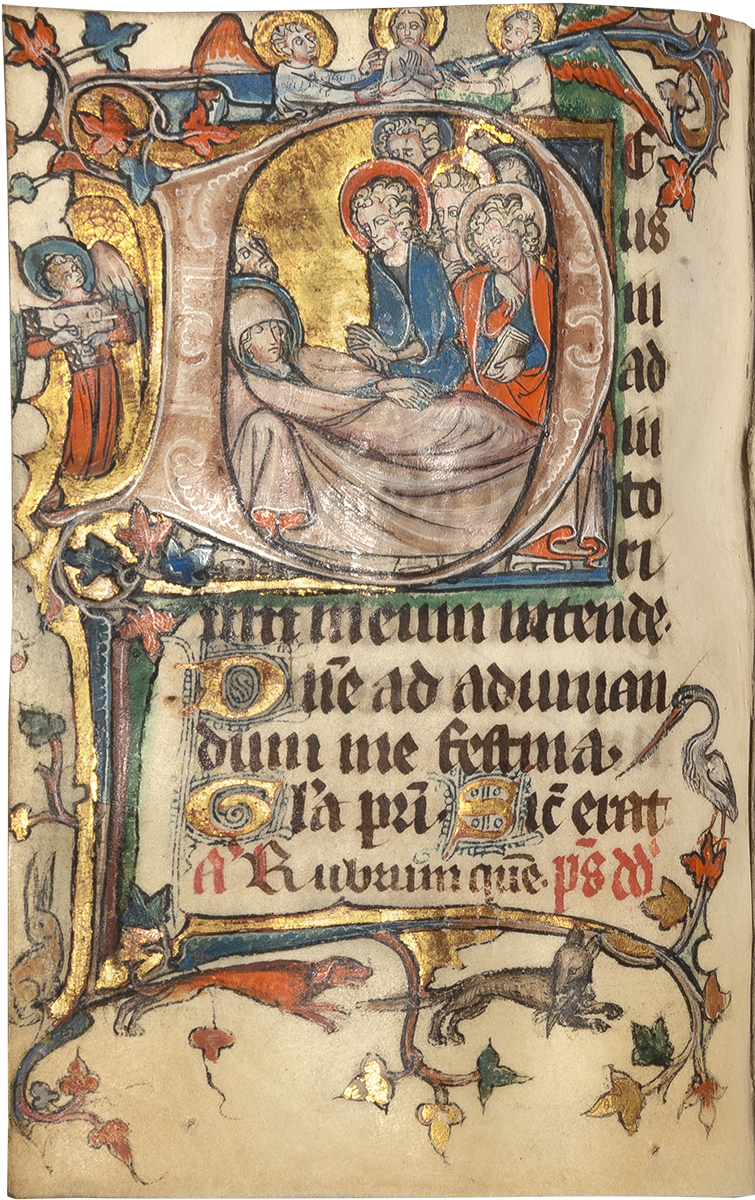 DE
us
in
ad
iu
to
ri
um meum intende.
Dn̄e ad adiuuan
dum me festina.
Gl'a pr̄i. Sic̄ erat
A' Rubrum quē. p̄s dd'